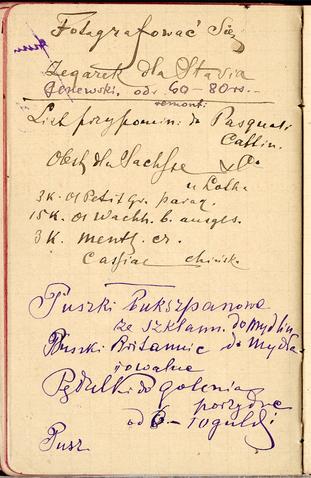 Fotografować się
Zegarek dla Stasia
Genewski, od 60-80 rs.
remont:
List przypomin: do Pasquali
Cattin.
Obst dla Sachse & Co
u Lotha
3 K. Ol Petit Gr. parag.
15 K. Ol Wachh. b. ausgez.
3 K. menth. cr.
Cassiae chińsk.
Puszki bukszpanowe
ze szkłem. do mydlin
Puszki Britannic do mydła
owalne
Pędzelki do golenia
porządne
od 6-10 guld.
Pusz